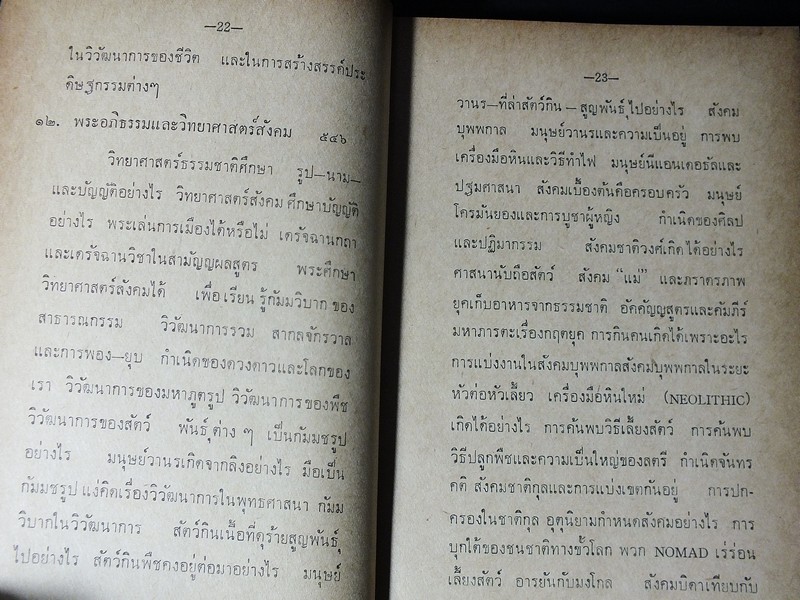 —22—
ในวิวัฒนาการของชีวิต และในการสร้างสรรค์ประ
ดิษฐกรรมต่างๆ
๑๒. พระอภิธรรมและวิทยาศาสตร์สังคม ๕๔๖
วิทยาศาสตร์ธรรมชาติศึกษา รูป—นาม—
และบัญญัติอย่างไร วิทยาศาสตร์สังคม ศึกษาบัญญัติ
อย่างไร พระเล่นการเมืองได้หรือไม่ เดรัจฉานกถา
และเดรัจฉานวิชาในสามัญญผลสูตร พระศึกษา
วิทยาศาสตร์สังคมได้ เพื่อ เรียน รู้กัมมวิบาก ของ
สาธารณกรรม วิวัฒนาการรวม สากลจักรวาล
และการพอง—ยุบ กำเนิดของดวงดาวและโลกของ
เรา วิวัฒนาการของมหาภูตรูป วิวัฒนาการของพืช
วิวัฒนาการของสัตว์ พันธุ์ต่าง ๆ เป็นกัมมชรูป
อย่างไร มนุษย์วานรเกิดจากลิงอย่างไร มือเป็น
กัมมชรูป แง่คิดเรื่องวิวัฒนาการในพุทธศาสนา กัมม
วิบากในวิวัฒนาการ สัตว์กินเนื้อที่ดุร้ายสูญพันธุ์
ไปอย่างไร สัตว์กินพืชคงอยู่ต่อมาอย่างไร มนุษย์
—23—
วานร—ที่ล่าสัตว์กิน — สูญพันธุ์ไปอย่างไร สังคม
บุพพกาล มนุษย์วานรและความเป็นอยู่ การพบ
เครื่องมือหินและวิธีทำไฟ มนุษย์นีแอนเดอธัลและ
ปฐมศาสนา สังคมเบื้องต้นคือครอบครัว มนุษย์
โครมันยองและการบูชาผู้หญิง กำเนิดของศิลป
และปฏิมากรรม สังคมชาติวงศ์เกิดได้อย่างไร
ศาสนานับถือสัตว์ สังคม “แม่” และภราดรภาพ
ยุคเก็บอาหารจากธรรมชาติ อัคคัญญสูตรและคัมภีร์
มหาภารตะเรื่องกฤตยุค การกินคนเกิดได้เพราะอะไร
การแบ่งงานในสังคมบุพพกาลสังคมบุพพกาลในระยะ
หัวต่อหัวเลี้ยว เครื่องมือหินใหม่ (NEOLITHIC)
เกิดได้อย่างไร การค้นพบวิธีเลี้ยงสัตว์ การค้นพบ
วิธีปลูกพืชและความเป็นใหญ่ของสตรี กำเนิดจันทร
คติ สังคมชาติกุลและการแบ่งเขตกันอยู่ การปก-
ครองในชาติกุล อุตุนิยามกำหนดสังคมอย่างไร การ
บุกใต้ของชนชาติทางขั้วโลก พวก NOMAD เร่ร่อน
เลี้ยงสัตว์ อารยันกับมงโกล สังคมบิดาเทียบกับ